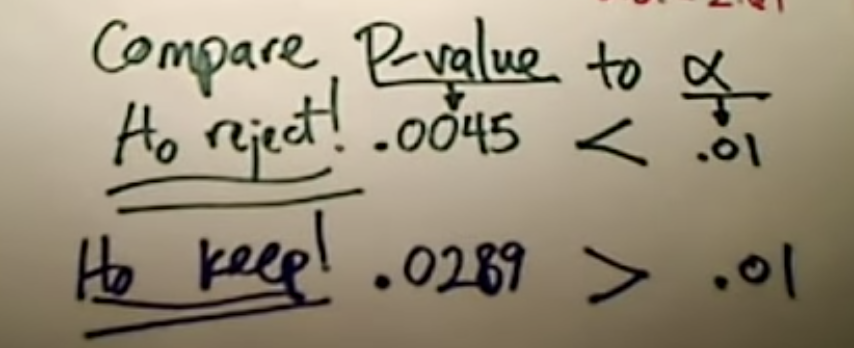 Compare P-value to α
Ho reject! .0045 < .01
Ho keep! .0289 > .01